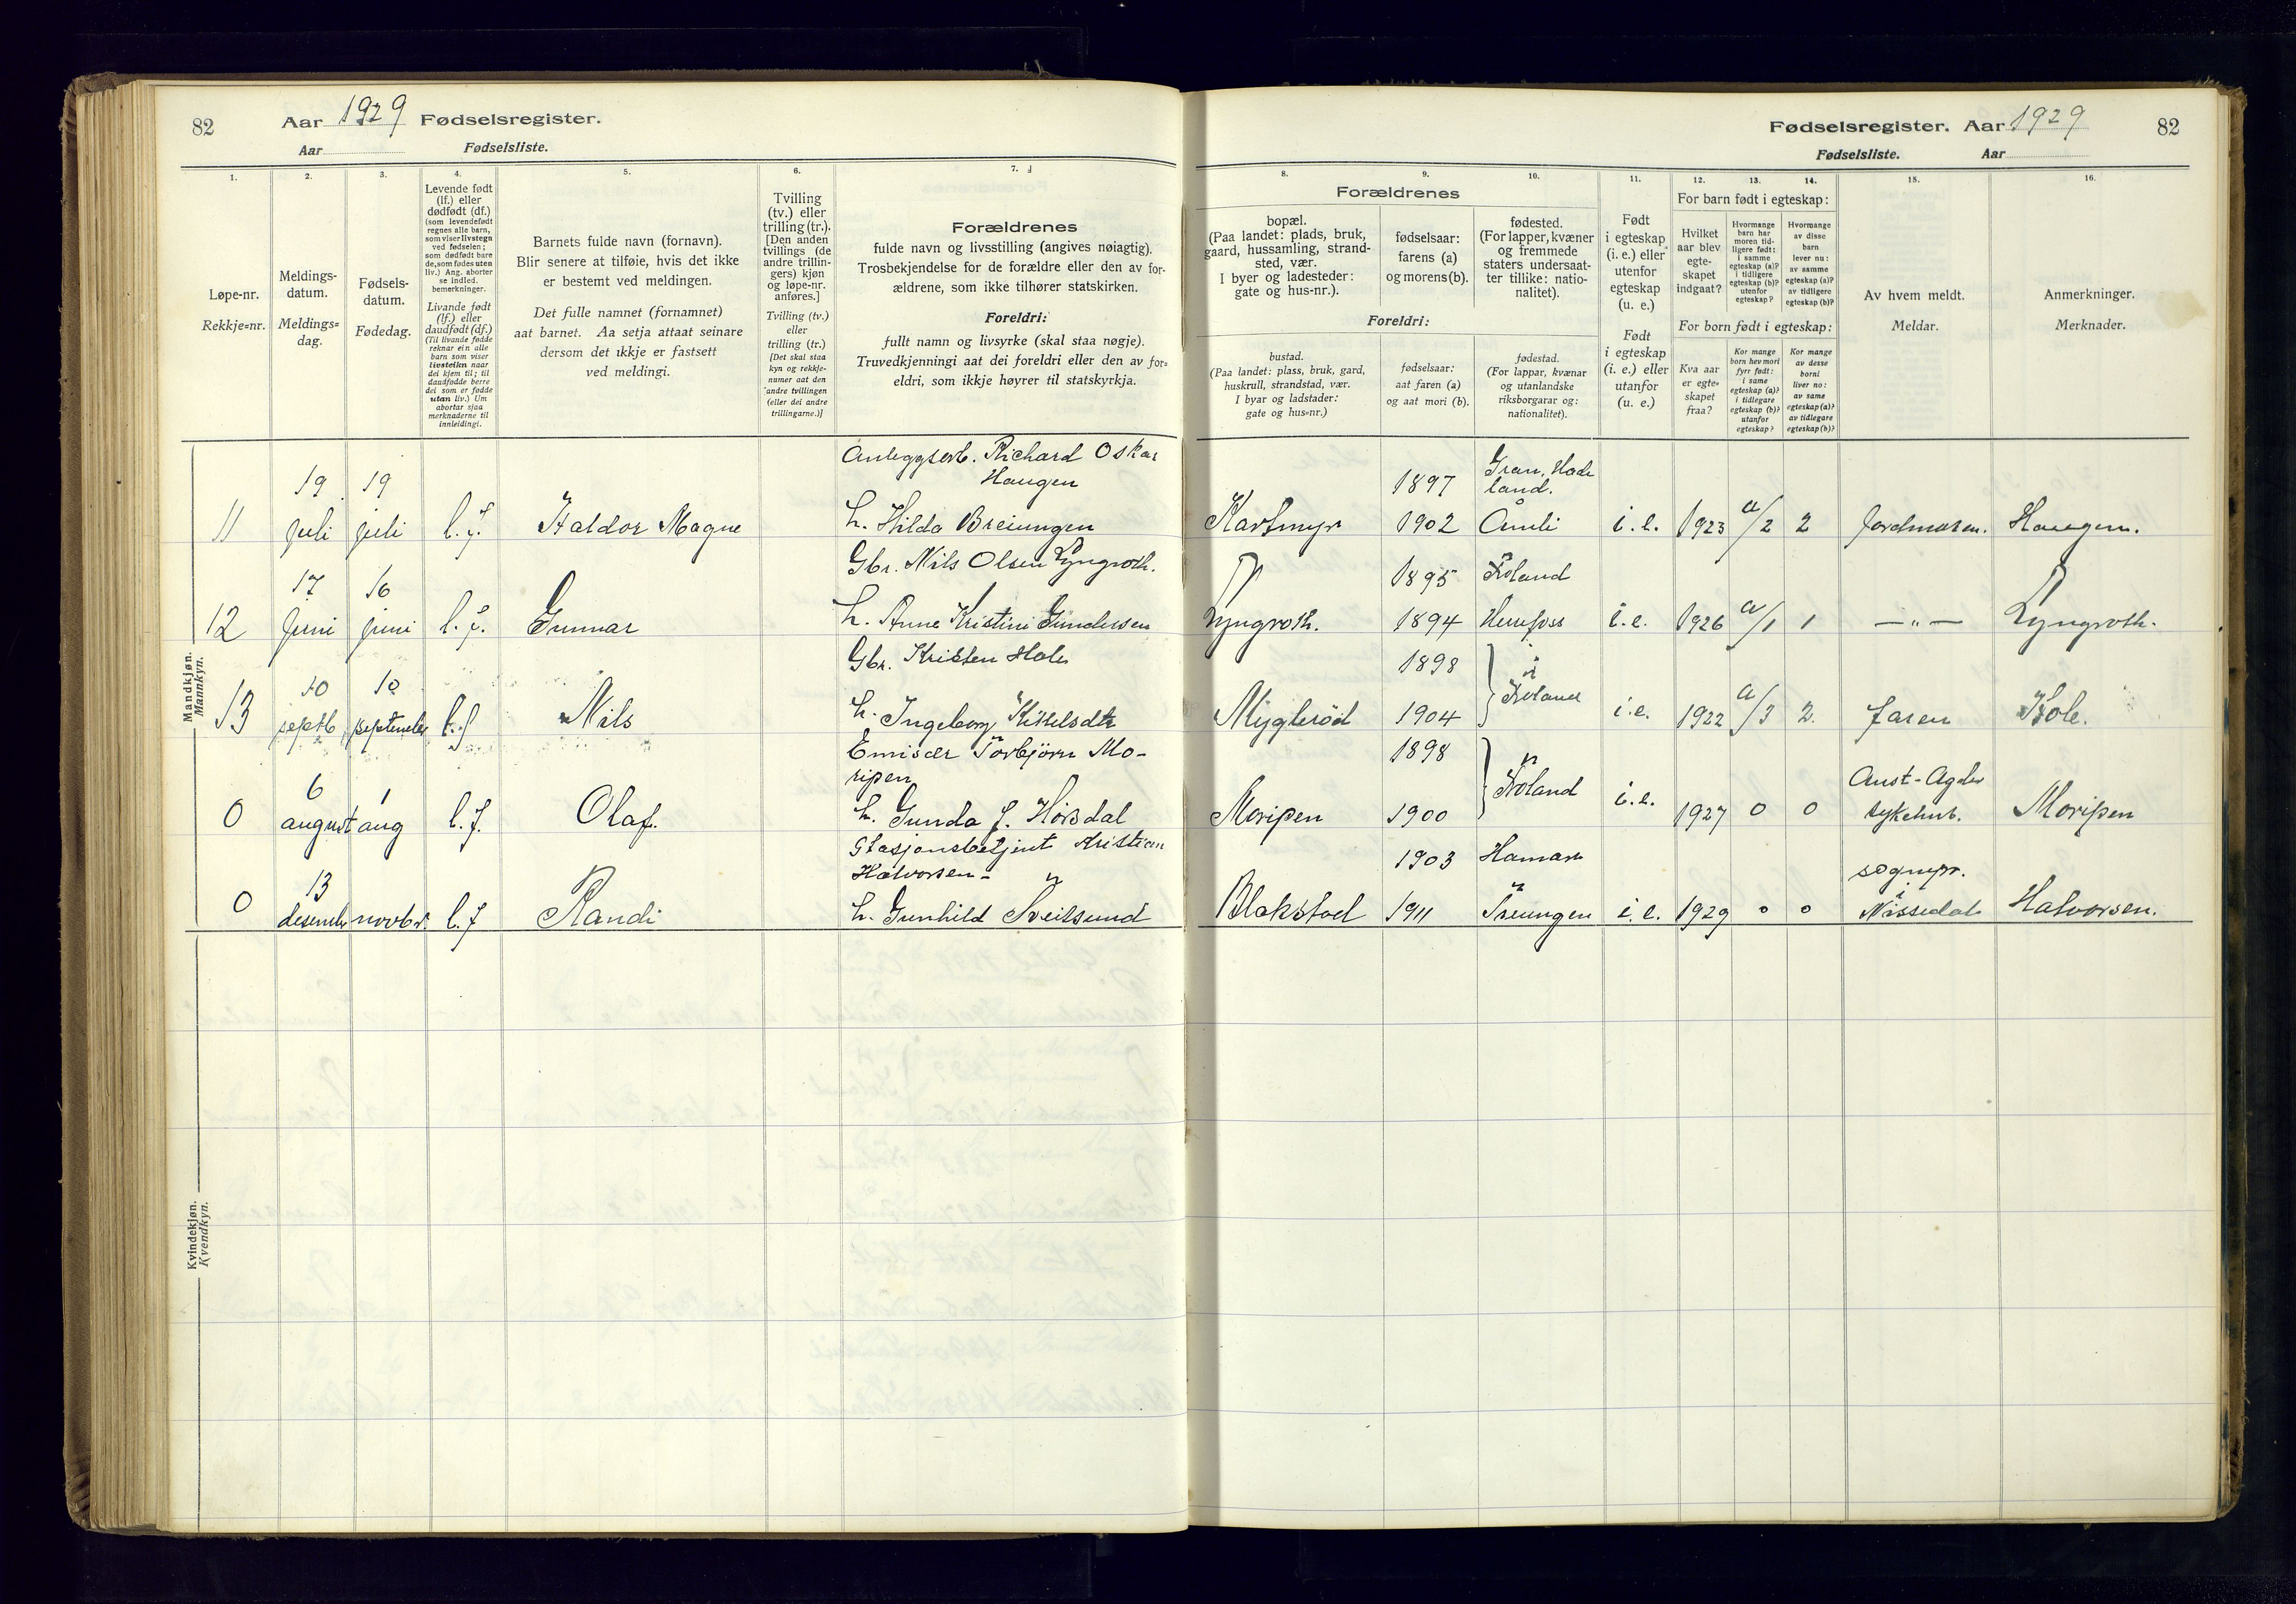 82
Aar 1929 Fødselsregister.
Aar Fødselsliste.
Fødselsregister. Aar 1929
82
Fødselsliste. Aar
1.
Løpe-nr.
Rekkje=nr.
2.
Meldings-
datum.
Meldings=
dag.
3.
Fødsels-
datum.
Fødedag.
4.
Levende født
(lf.) eller
dødfødt (df.)
(som levendefødt
regnes alle barn,
som viser livstegn
ved fødselen;
som dødfødt bare
de, som fødes uten
liv.) Ang. aborter
se indled.
bemerkninger.
Livande født
(lf.) eller
daudfødt (df.)
(Til livande fødde
reknar ein alle
barn som viser
livsteikn naar
dei kjem til; til
daudfødde berre
dei som er fødde
utan liv.) Um
abortar sjaa
merknaderne til
innleidingi.
5.
Barnets fulde navn (fornavn).
Blir senere at tilføie, hvis det ikke
er bestemt ved meldingen.
Det fulle namnet (fornamnet)
aat barnet. Aa setja attaat seinare
dersom det ikkje er fastsett
ved meldingi.
6.
Tvilling
(tv.) eller
trilling (tr.).
[Den anden
tvillings (de
andre trillin-
gers) kjøn
og løpe-nr.
anføres.]
Tvilling (tv.)
eller
trilling (tr.)
[Det skal staa
kyn og rekkje-
numer aat den
andre tvillingen
(eller dei andre
trillingarne.)]
7.
Forældrenes
fulde navn og livsstilling (angives nøiagtig).
Trosbekjendelse for de forældre eller den av for-
ældrene, som ikke tilhører statskirken.
Foreldri:
fullt namn og livsyrke (skal staa nøgje).
Truvedkjenningi aat dei foreldri eller den av for=
eldri, som ikkje høyrer til statskyrkja.
Forældrenes
8.
bopæl.
(Paa landet: plads, bruk,
gaard, hussamling, strand-
sted, vær.
I byer og ladesteder:
gate og hus-nr.).
Foreldri:
bustad.
(Paa landet: plass, bruk, gard,
huskrull, strandstad, vær.
I byar og ladstader:
gate og hus-nr.)
9.
fødselsaar:
farens (a)
og morens (b).
fødselsaar:
aat faren (a)
og aat mori (b).
10.
fødested.
(For lapper, kvæner
og fremmede
staters undersaat-
ter tillike: natio-
nalitet).
fødestad.
(For lappar, kvænar
og utanlandske
riksborgarar og:
nationalitet).
11.
Født
i egteskap
(i. e.) eller
utenfor
egteskap
(u. e.)
Født
i egteskap
(i. e.) eller
utanfor
(u. e.)
12. 13. 14.
For barn født i egteskap:
Hvilket
aar blev
egte-
skapet
indgaat?
Hvormange
barn har
moren tid-
ligere født:
i samme
egteskap (a)?
i tidligere
egteskap (b)?
utenfor
egteskap?
Hvormange
av disse
barn
lever nu:
av samme
egteskap (a)?
av tidligere
egteskap (b)?
For born født i egteskap:
Kva aar
er egte=
skapet
fraa?
Kor mange
born hev mori
fyrr født:
i same
egteskap (a)?
i tidlegare
egteskap (b)?
utanfor
egteskap?
Kor mange
av desse
borni
liver no:
av same
egteskap (a)?
av tidlegare
egteskap (b)?
15.
Av hvem meldt.
Meldar.
16.
Anmerkninger.
Merknader.
Mandkjøn.
Mannkyn.
11 19 juli 19 juli l. f. Haldor Magne
Anleggsarb. Richard Oskar
Haugen
h. Hilda Breiungen
Kartmyr 1897 Gran, Hade
land.
1902 Åmli i. e. 1923 a/2 2 Jordmoren. Haugen.
12 17 juni 16 juni l. f. Gunnar
Gbr. Nils Olsen Lyngroth.
h. Anne Kristine Gundersen
Lyngroth. 1895 Froland
1894 Herefoss i. e. 1926 a/1 1 — " — Lyngroth.
13 10 septb 10 september l. f Nils
Gbr. Kristen Hole
h. Ingeborg Kittelsdtr
Myglerød 1898
1904 } Froland i. e. 1922 a/3 2. faren Hole.
0 6 august 1 aug l. f. Olaf.
Emissær Torbjörn Mo-
ripen
h. Gunda J. Hörsdal
Moripen 1898
1900 } Froland i. e. 1927 0 0 Aust-Agder
sykehus. Moripen
0 13 desember novbr. l. f Randi
Stasjonsbetjent Kristian
Halvorsen -
h. Gunhild Sveitsund
Blakstad 1903 Hamar
1911 Treungen i. e. 1929 0 0 sognepr.
i
Nissedal Halvorsen.
Kvindekjøn.
Kvendkyn.